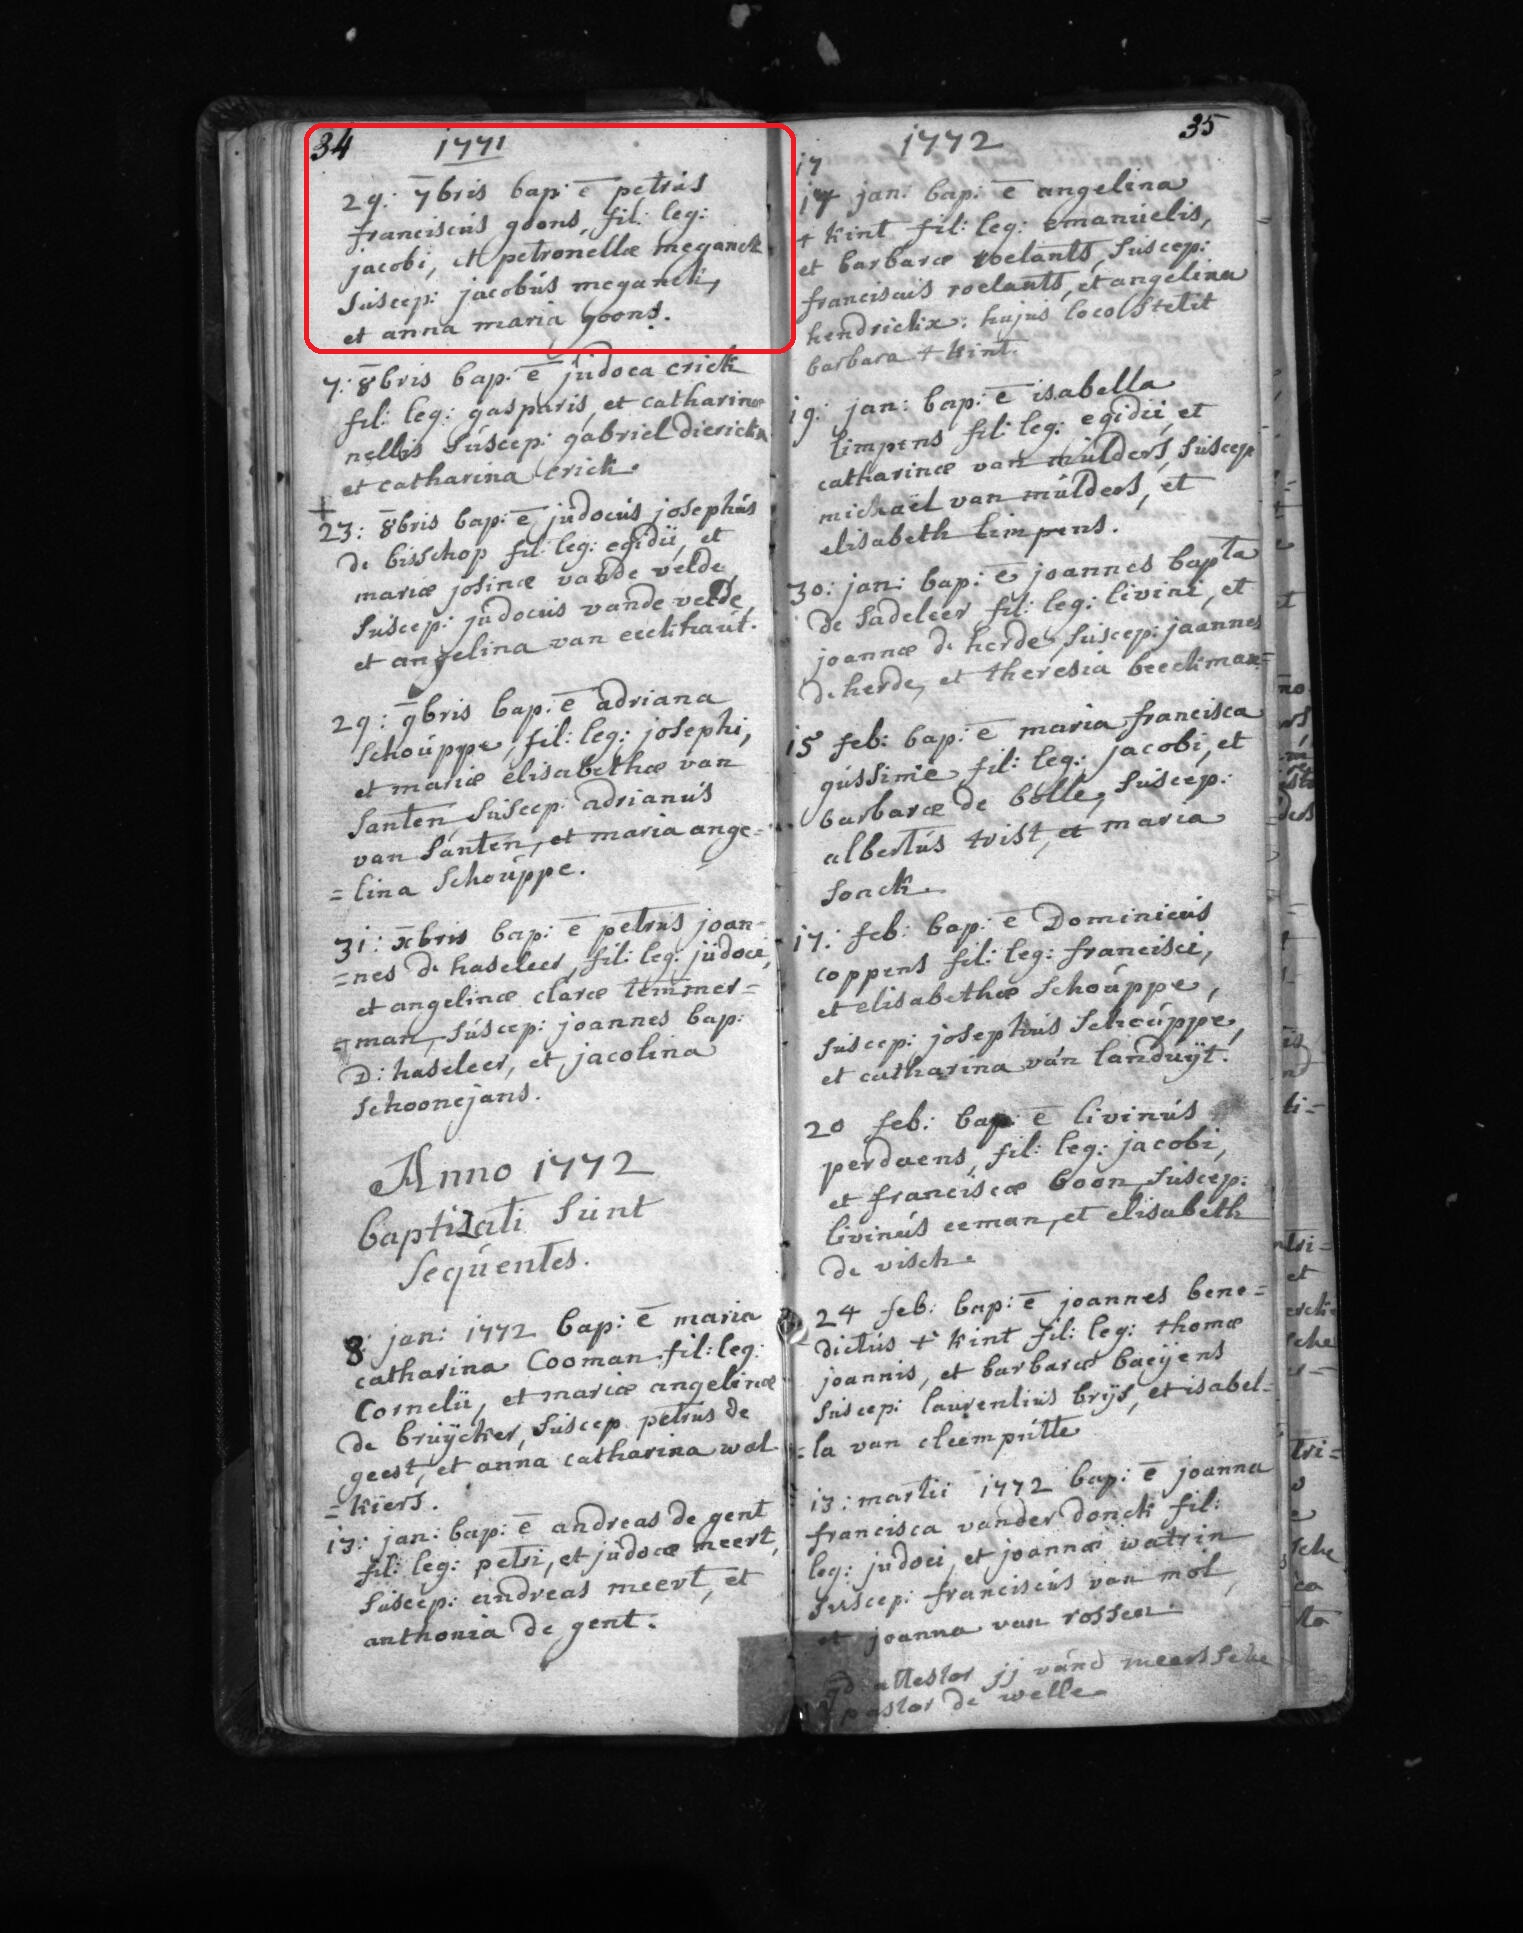 34 1771
29: 7bris bap: ē petrus
franciscus goons, fil: leg:
jacobi, et petronellæ meganck
suscep: jacobus meganck,
et anna maria goons.
7: 8bris bap: ē judoca crick
fil: leg: gasparis, et catharinæ
nellis suscep: gabriel dierickx
et catharina crick.
+
23: 8bris bap: ē judocus josephus
de bisschop fil: leg: egidii, et
mariæ josinæ vande velde,
suscep: judocus vande velde,
et angelina van eeckhaut.
29: 9bris bap: ē adriana
schouppe, fil: leg: josephi,
et mariæ elisabethæ van
santen, suscep: adrianus
van santen, et maria ange=
=lina schouppe.
31: xbris bap: ē petrus joan-
=nes de haseleer, fil: leg: judoci,
et angelinæ claræ temmer=
=man, suscep: joannes bap:
D: haseleer, et jacolina
schoonejans.
Anno 1772
baptisati sunt
sequentes.
8: jan: 1772 bap: ē maria
catharina Cooman fil: leg:
Cornelii, et mariæ angelinæ
de bruÿcker, suscep petrus de
geest, et anna catharina wol
=kiers.
13: jan: bap: ē andreas de gent
fil: leg: petri, et judocæ meert,
suscep: andreas meert, et
anthonia de gent.
1772 35
17
17 jan: bap: ē angelina
t kint fil: leg: emanuelis,
et barbaræ roelants, suscep:
franciscus roelants, et angelina
hendrickx: hujus loco stetit
barbara t kint.
19: jan: bap: ē isabella
limpens fil: leg: egidii, et
catharinæ van mulders, suscep
michaël van mulders, et
elisabeth limpens.
30: jan: bap: ē joannes bapta
de sadeleer fil: leg: livini, et
joannæ d: herde, suscep: joannes
d: herde, et theresia beeckman=
15 feb: bap: ē maria francisca
gussinie fil: leg: jacobi, et
barbaræ de bolle, suscep:
albertus trist, et maria
sonck.
17: feb: bap: ē Dominicus
coppens fil: leg: francisci,
et elisabethæ schouppe,
suscep: josephus schouppe,
et catharina van landuÿt.
20 feb: bap: ē livinus
perdaens, fil: leg: jacobi,
et franciscæ boon, suscep:
livinus eeman, et elisabeth
de visch.
24 feb: bap: ē joannes bene=
dictus t' kint fil: leg: thomæ
joannis, et barbaræ baeÿens
suscep: laurentius brÿs, et isabel-
=la van cleemputte
13: martii 1772 bap: ē joanna
francisca vander donck fil:
leg: judoci, et joannæ watrin
suscep: franciscus van mol,
et joanna van rossen.
attestor jj vand meerssche
pastor de welle